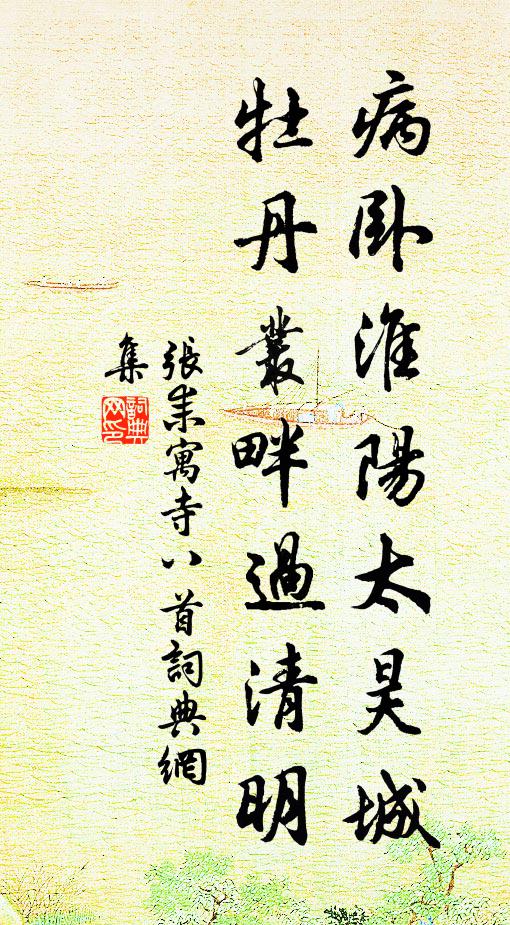 病卧淮陽太昊城
牡丹叢畔過清明
張耒寓寺八首詞典網
集
詞典
网印